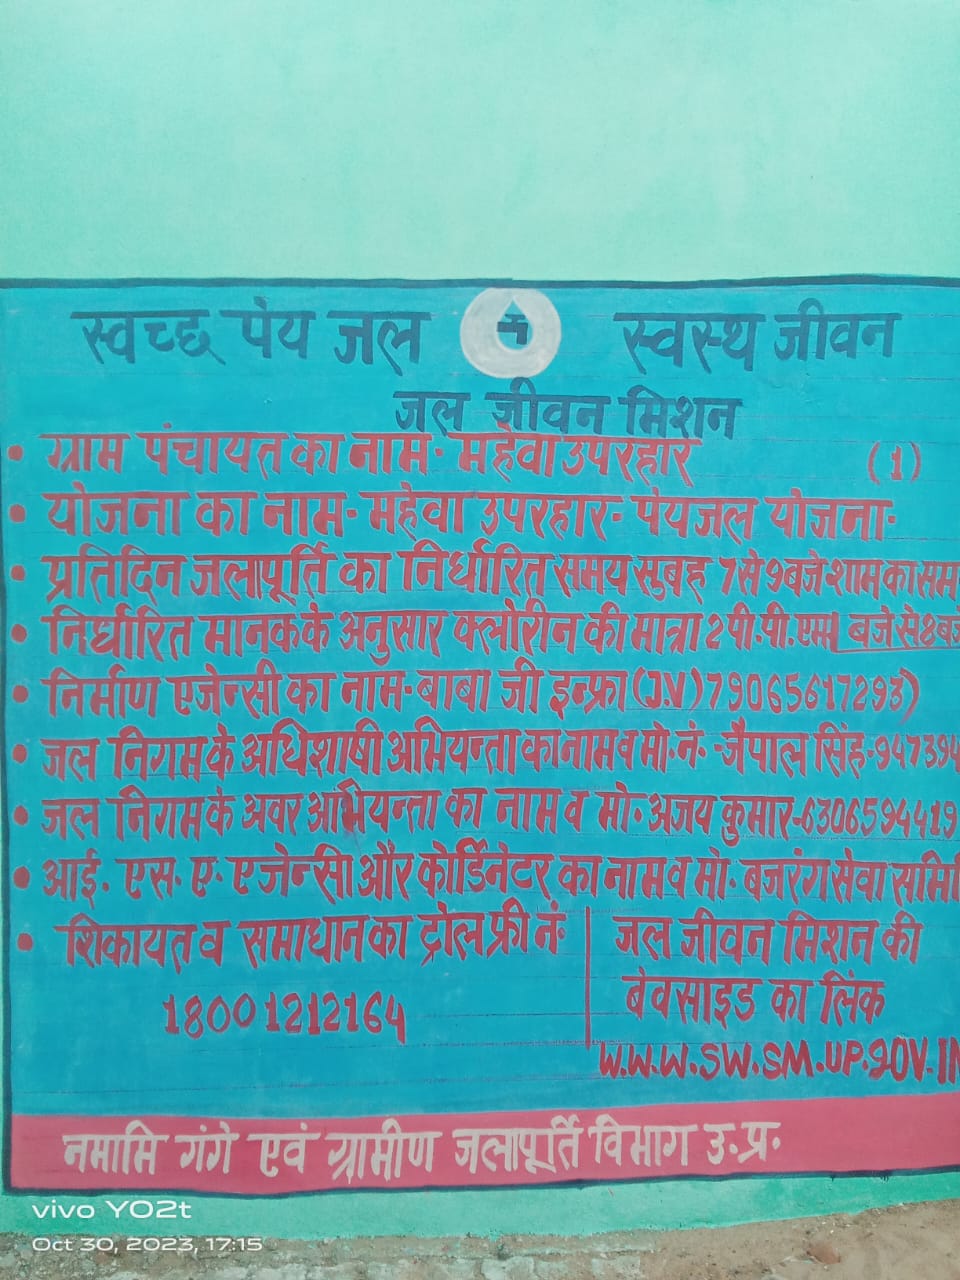 स्वच्छ पेय जल स्वस्थ जीवन
जल जीवन मिशन
• ग्राम पंचायत का नाम- महेवा उपरहार (1)
• योजना का नाम- महेवा उपरहार- पेयजल योजना-
• प्रतिदिन जलापूर्ति का निर्धारित समय सुबह 7 से 9 बजे शाम का सम
• निर्धारित मानक के अनुसार क्लोरीन की मात्रा 2 पी.पी.एम बजे से 8 बजे
• निर्माण एजेन्सी का नाम- बाबा जी इन्फ्रा (J.V) 79065617293)
• जल निगम के अधिशाषी अभियन्ता का नाम व मो. नं.-जैपाल सिंह-94739
• जल निगम के अवर अभियन्ता का नाम व मो. अजय कुमार-6306594419
• आई. एस. ए. एजेन्सी और कोर्डिनेटर का नाम व मो. बजरंग सेवा समिति
• शिकायत व समाधान का ट्रोल फ्री नं.
18001212164
जल जीवन मिशन की
बेवसाइड का लिंक
W.W.W.SW.SM.UP.GOV.IN
नमामि गंगे एवं ग्रामीण जलापूर्ति विभाग उ.प्र.
vivo Y02t
Oct 30, 2023, 17:15